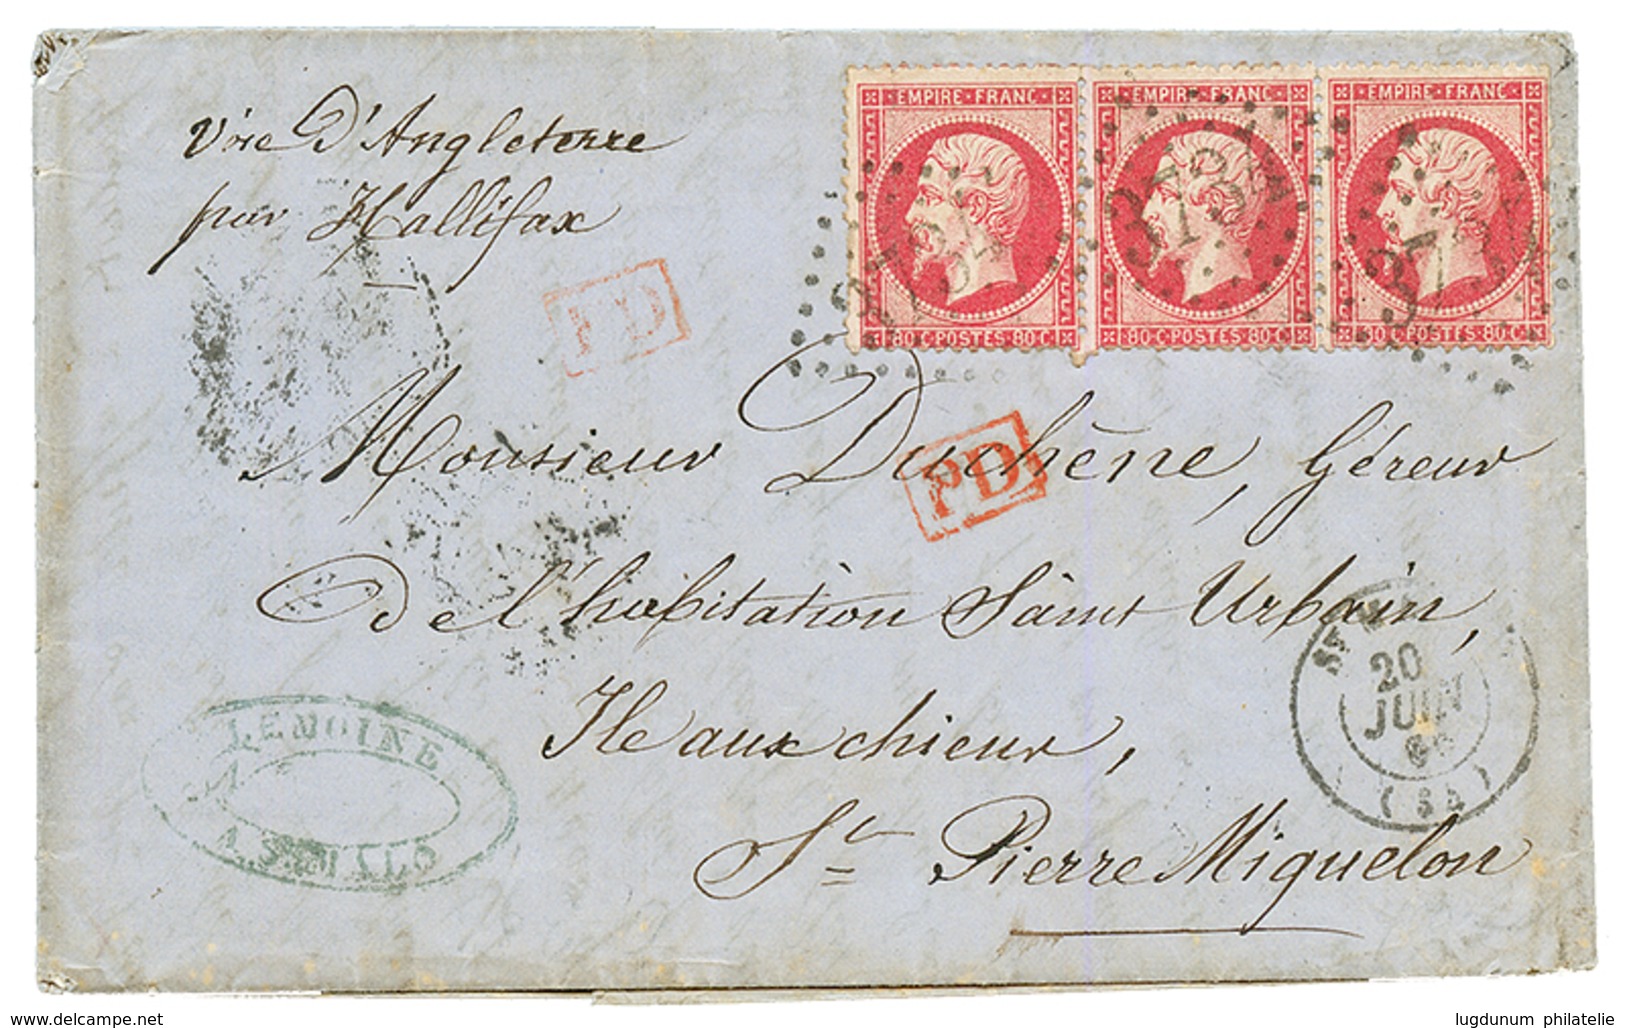 Voie D'Angleterre
par Hallifax
EMPIRE FRANC
EMPIRE FRANC
EMPIRE FRANC
3734
3734
37
80 C POSTES 80 C
80 C POSTES 80 C
80 C POSTES 80 C
PD
PD
Monsieur Duchêne, Géreur
De l'habitation Saint Urbain,
Ile aux chiens,
St Pierre Miquelon
LEMOINE
A ST MALO
20
JUIN
(34)
delcampe.net
lugdunum philatelie